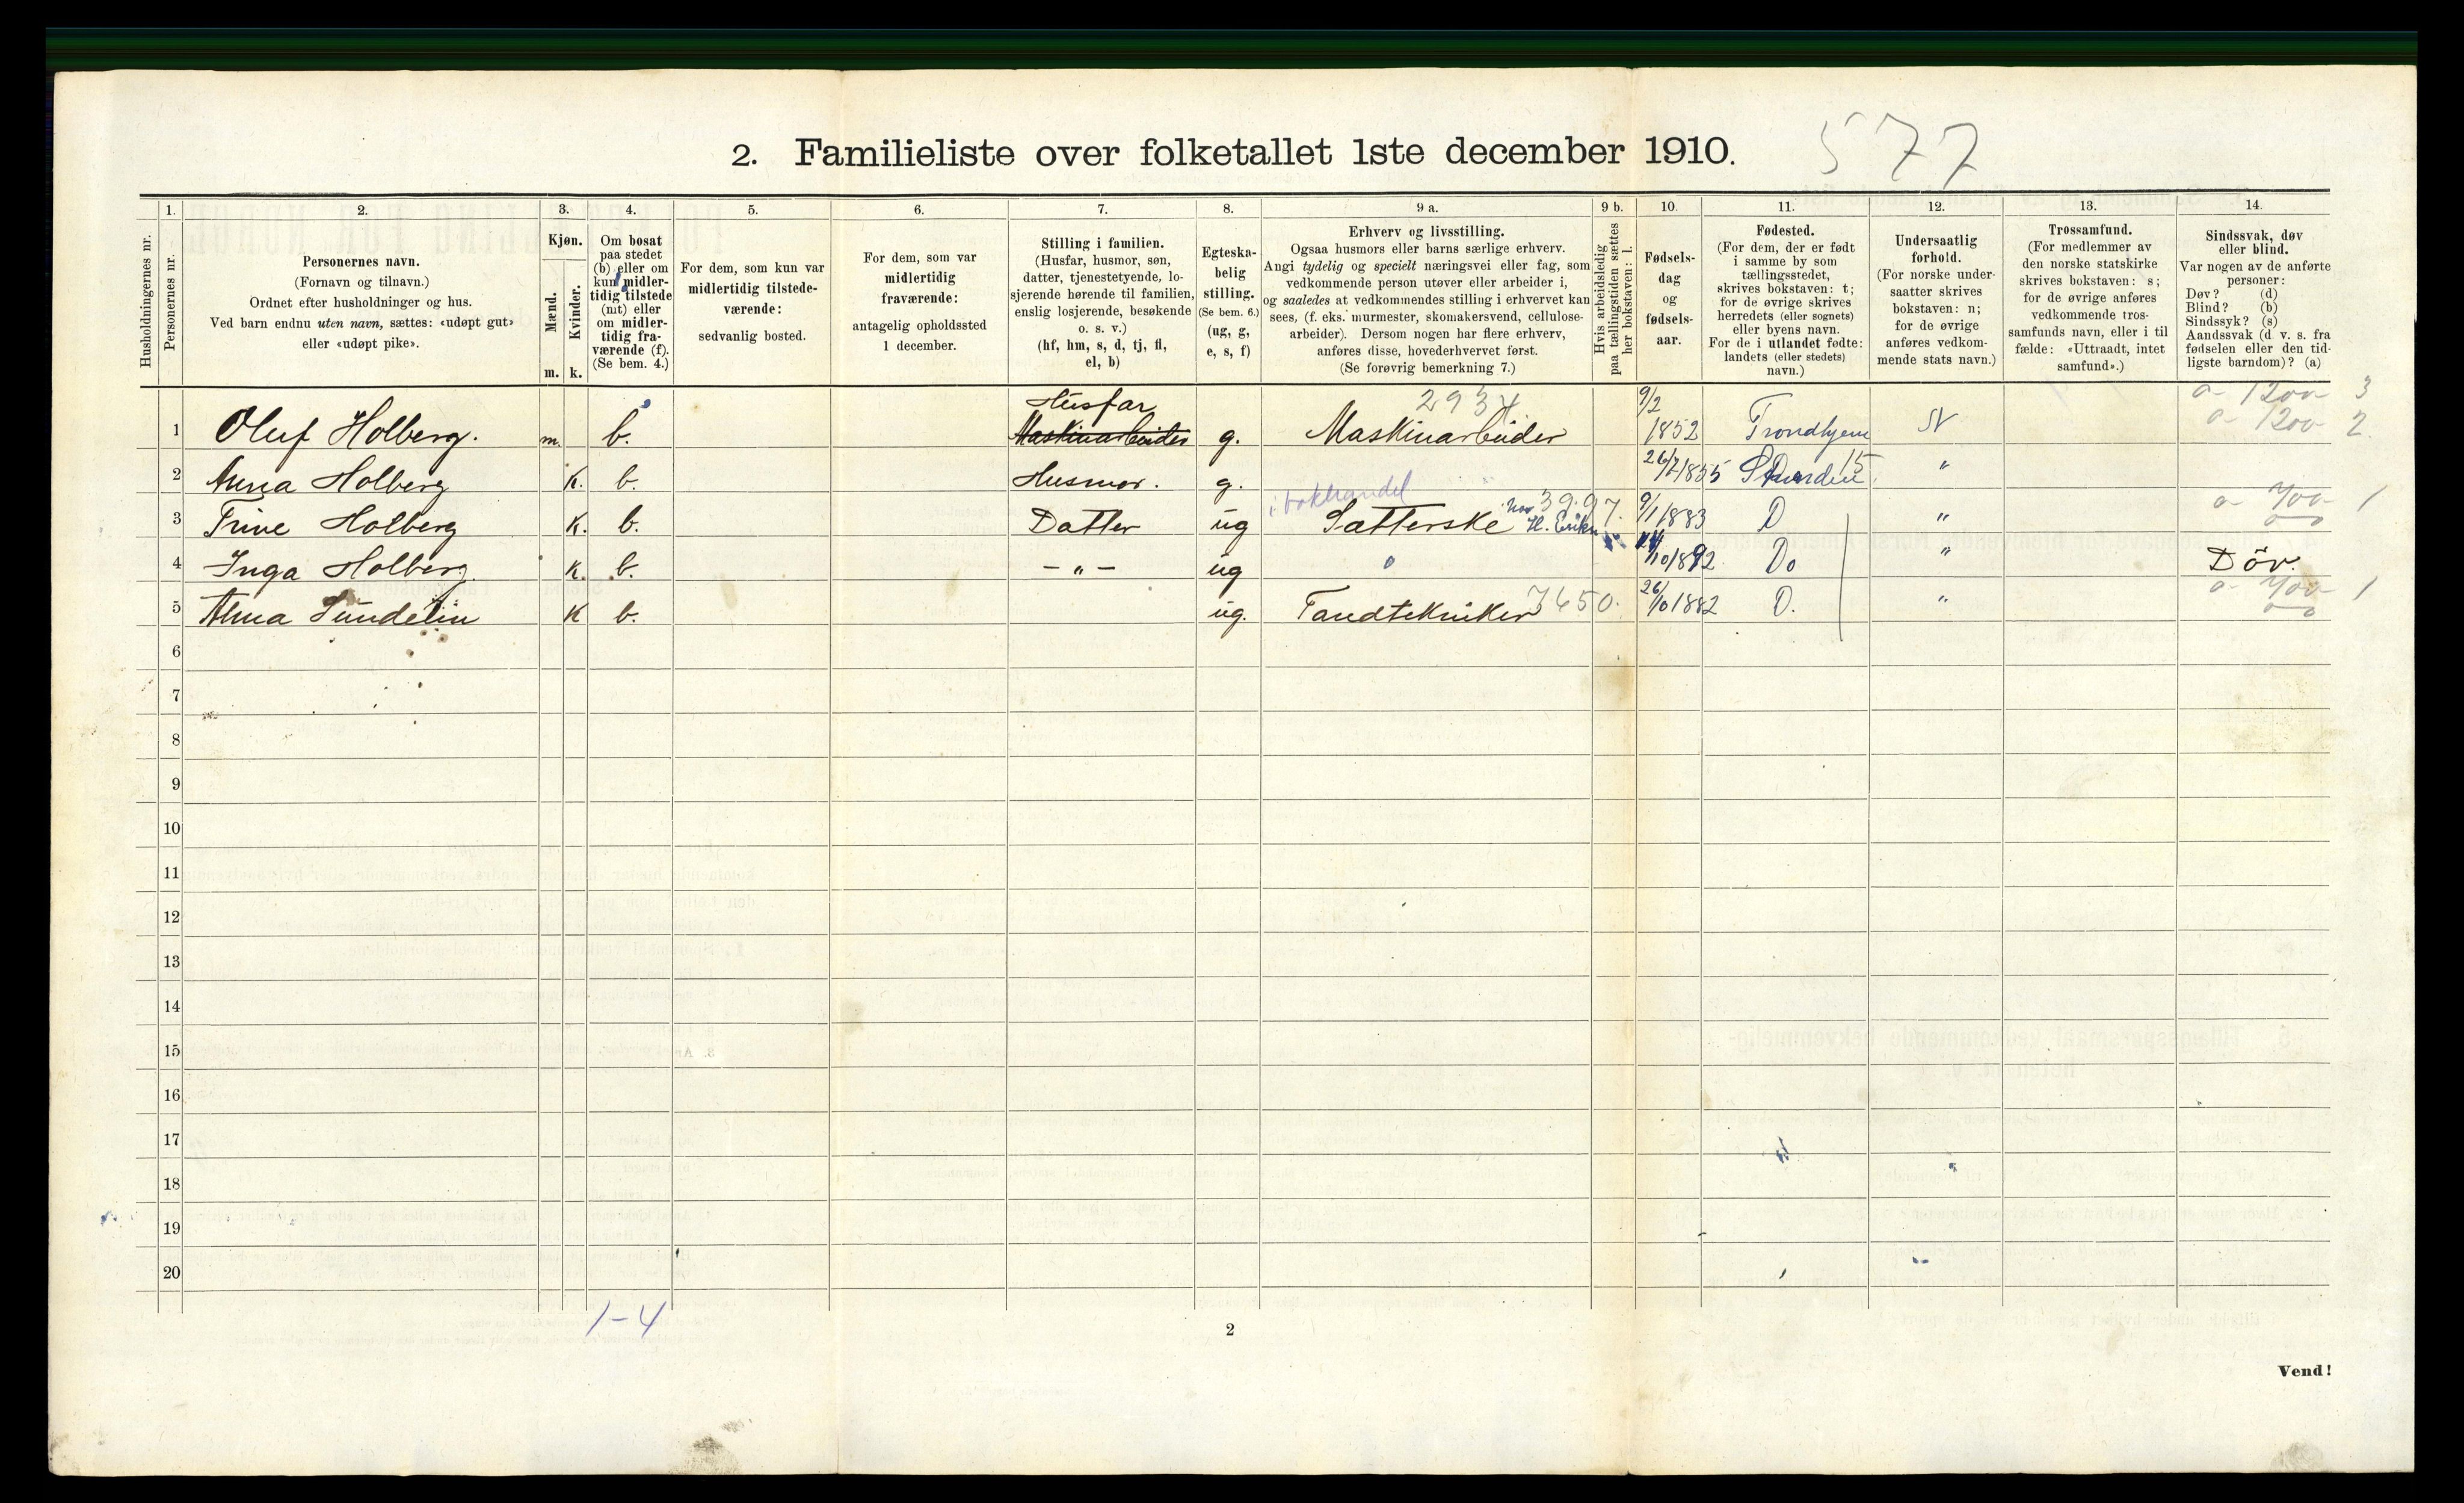 2. Familieliste over folketallet 1ste december 1910.
577
Husholdningernes nr.
1.
Personernes nr.
2.
Personernes navn.
(Fornavn og tilnavn.)
Ordnet efter husholdninger og hus.
Ved barn endnu uten navn, sættes: «udøpt gut»
eller «udøpt pike».
3.
Kjøn.
Mænd.
Kvinder.
m. k.
4.
Om bosat
paa stedet
(b) eller om
kun midler-
tidig tilstede
(mt) eller
om midler-
tidig fra-
værende (f).
(Se bem. 4.)
5.
For dem, som kun var
midlertidig tilstede-
værende:
sedvanlig bosted.
6.
For dem, som var
midlertidig
fraværende:
antagelig opholdssted
1 december.
7.
Stilling i familien.
(Husfar, husmor, søn,
datter, tjenestetyende, lo-
sjerende hørende til familien,
enslig losjerende, besøkende
o. s. v.)
(hf, hm, s, d, tj, fl,
el, b)
8.
Egteska-
belig
stilling.
(Se bem. 6.)
(ug, g,
e, s, f)
9 a.
Erhverv og livsstilling.
Ogsaa husmors eller barns særlige erhverv.
Angi tydelig og specielt næringsvei eller fag, som
vedkommende person utøver eller arbeider i,
og saaledes at vedkommendes stilling i erhvervet kan
sees, (f. eks. murmester, skomakersvend, cellulose-
arbeider). Dersom nogen har flere erhverv,
anføres disse, hovederhvervet først.
(Se forøvrig bemerkning 7.)
9 b.
Hvis arbeidsledig
paa tællingstiden sættes
her bokstaven: l.
10.
Fødsels-
dag
og
fødsels-
aar.
11.
Fødested.
(For dem, der er født
i samme by som
tællingsstedet,
skrives bokstaven: t;
for de øvrige skrives
herredets (eller sognets)
eller byens navn.
For de i utlandet fødte:
landets (eller stedets)
navn.)
12.
Undersaatlig
forhold.
(For norske under-
saatter skrives
bokstaven: n;
for de øvrige
anføres vedkom-
mende stats navn.)
13.
Trossamfund.
(For medlemmer av
den norske statskirke
skrives bokstaven: s;
for de øvrige anføres
vedkommende tros-
samfunds navn, eller i til
fælde: «Uttraadt, intet
samfund».)
14.
Sindssvak, døv
eller blind.
Var nogen av de anførte
personer:
Døv? (d)
Blind? (b)
Sindssyk? (s)
Aandssvak (d v. s. fra
fødselen eller den tid-
ligste barndom)? (a)
Husfar 2934 9/2 a 1200 3
1 Oluf Holberg. m. b. Maskinarbeider g. Maskinarbeider 1852 Trondhjem N a 1200 2
2 Anna Holberg K. b. Husmor. g. 26/7 1855 15 "
i bokhandel 3997. a 700 1
3 Trine Holberg K. b. Datter ug Sætterske hos H. 9/1 1883 D "
4 Inga Holberg. K. b. — „ — ug 0 10/1892 Do " Döv.
5 Alma Sundelin K b. ug. Tandtekniker 7650. 26/10 1882 D. " a 700 1
6
7
8
9
10
11
12
13
14
15
16
17
18
19
20
1-4
2
Vend!